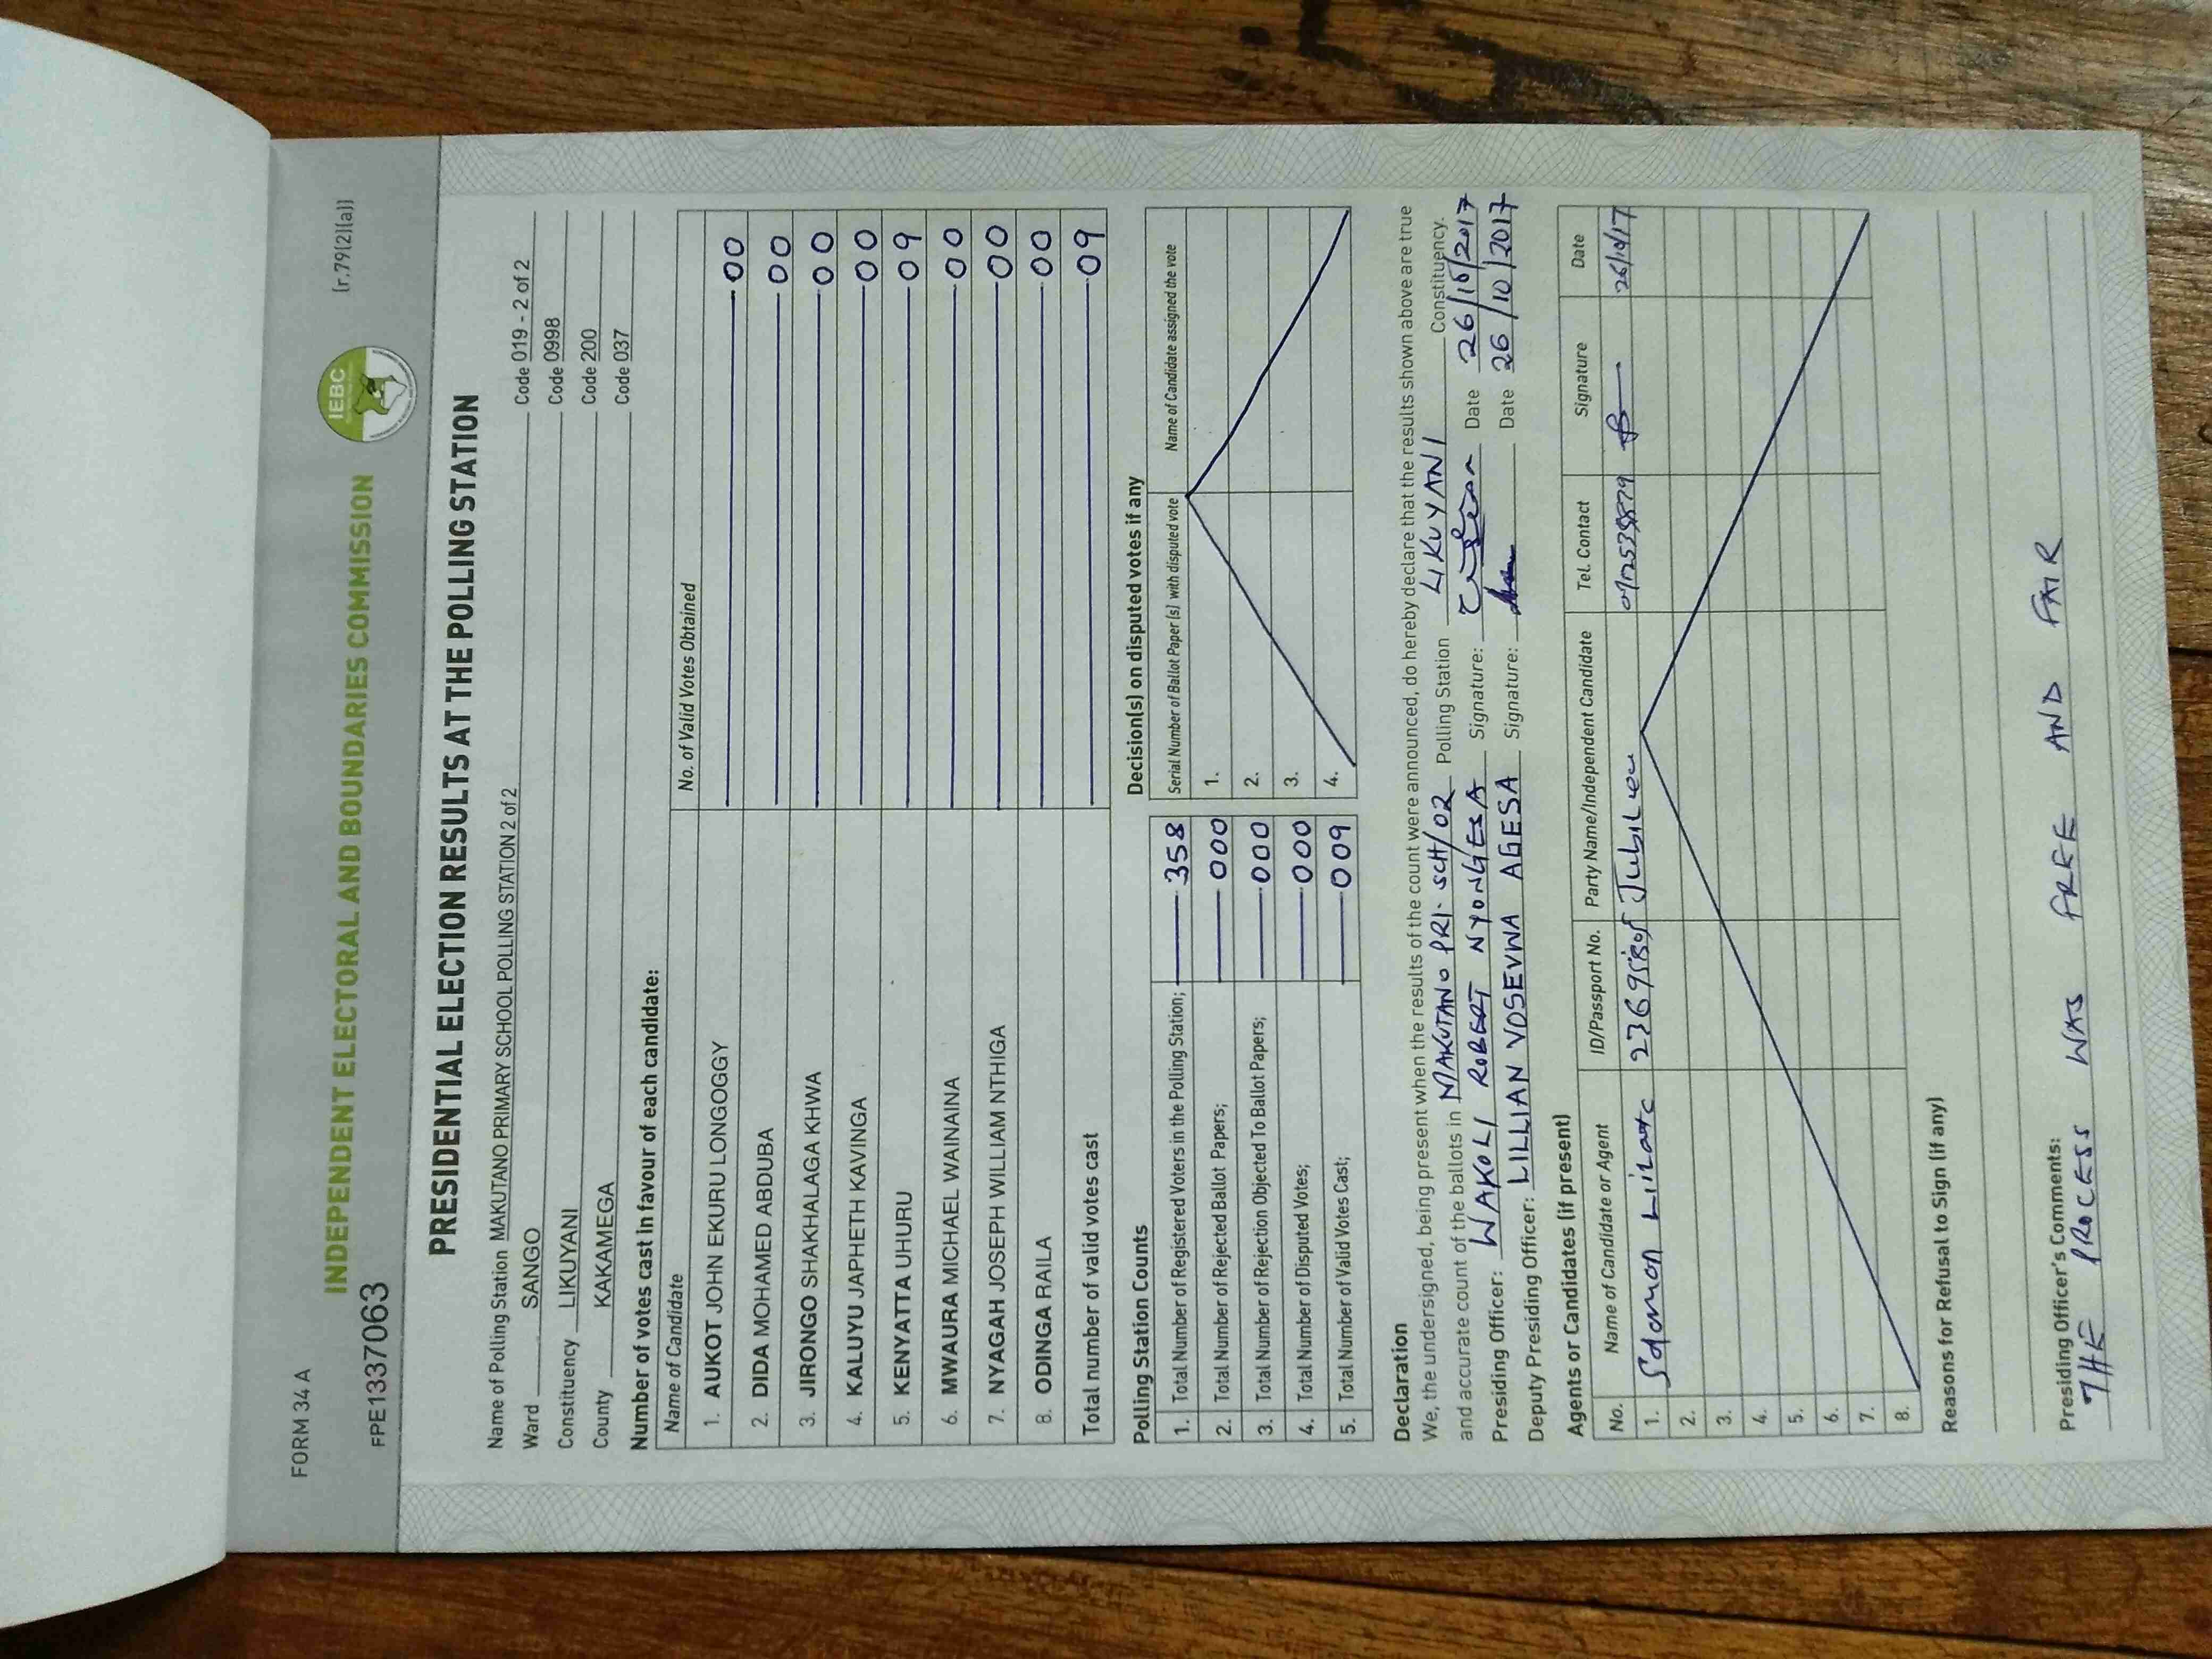 FORM 34 A
(r.79(2)(a))
INDEPENDENT ELECTORAL AND BOUNDARIES COMMISSION
IEBC
FPE1337063
PRESIDENTIAL ELECTION RESULTS AT THE POLLING STATION
Name of Polling Station MAKUTANO PRIMARY SCHOOL POLLING STATION 2 of 2 Code 019 - 2 of 2
Ward SANGO Code 0998
Constituency LIKUYANI Code 200
County KAKAMEGA Code 037
Number of votes cast in favour of each candidate:
Name of Candidate No. of Valid Votes Obtained
1. AUKOT JOHN EKURU LONGOGGY 00
2. DIDA MOHAMED ABDUBA 00
3. JIRONGO SHAKHALAGA KHWA 00
4. KALUYU JAPHETH KAVINGA 00
5. KENYATTA UHURU 09
6. MWAURA MICHAEL WAINAINA 00
7. NYAGAH JOSEPH WILLIAM NTHIGA 00
8. ODINGA RAILA 00
Total number of valid votes cast 09
Polling Station Counts
1. Total Number of Registered Voters in the Polling Station; 358
2. Total Number of Rejected Ballot Papers; 000
3. Total Number of Rejection Objected To Ballot Papers; 000
4. Total Number of Disputed Votes; 000
5. Total Number of Valid Votes Cast; 009
Decision(s) on disputed votes if any
Serial Number of Ballot Paper (s) with disputed vote Name of Candidate assigned the vote
1.
2.
3.
4.
Declaration
We, the undersigned, being present when the results of the count were announced, do hereby declare that the results shown above are true
and accurate count of the ballots in MAKUTANO PRI. SCH/02 Polling Station LIKUYANI Constituency.
Presiding Officer: WAKOLI ROBERT NYONGESA Signature: Date 26/10/2017
Deputy Presiding Officer: LILLIAN VOSEVWA AGESA Signature: Date 26/10/2017
Agents or Candidates (if present)
No. Name of Candidate or Agent ID/Passport No. Party Name/Independent Candidate Tel. Contact Signature Date
1. Solomon Jubilee 26/10/17
2.
3.
4.
5.
6.
7.
8.
Reasons for Refusal to Sign (if any)
Presiding Officer's Comments:
THE PROCESS WAS FREE AND FAIR